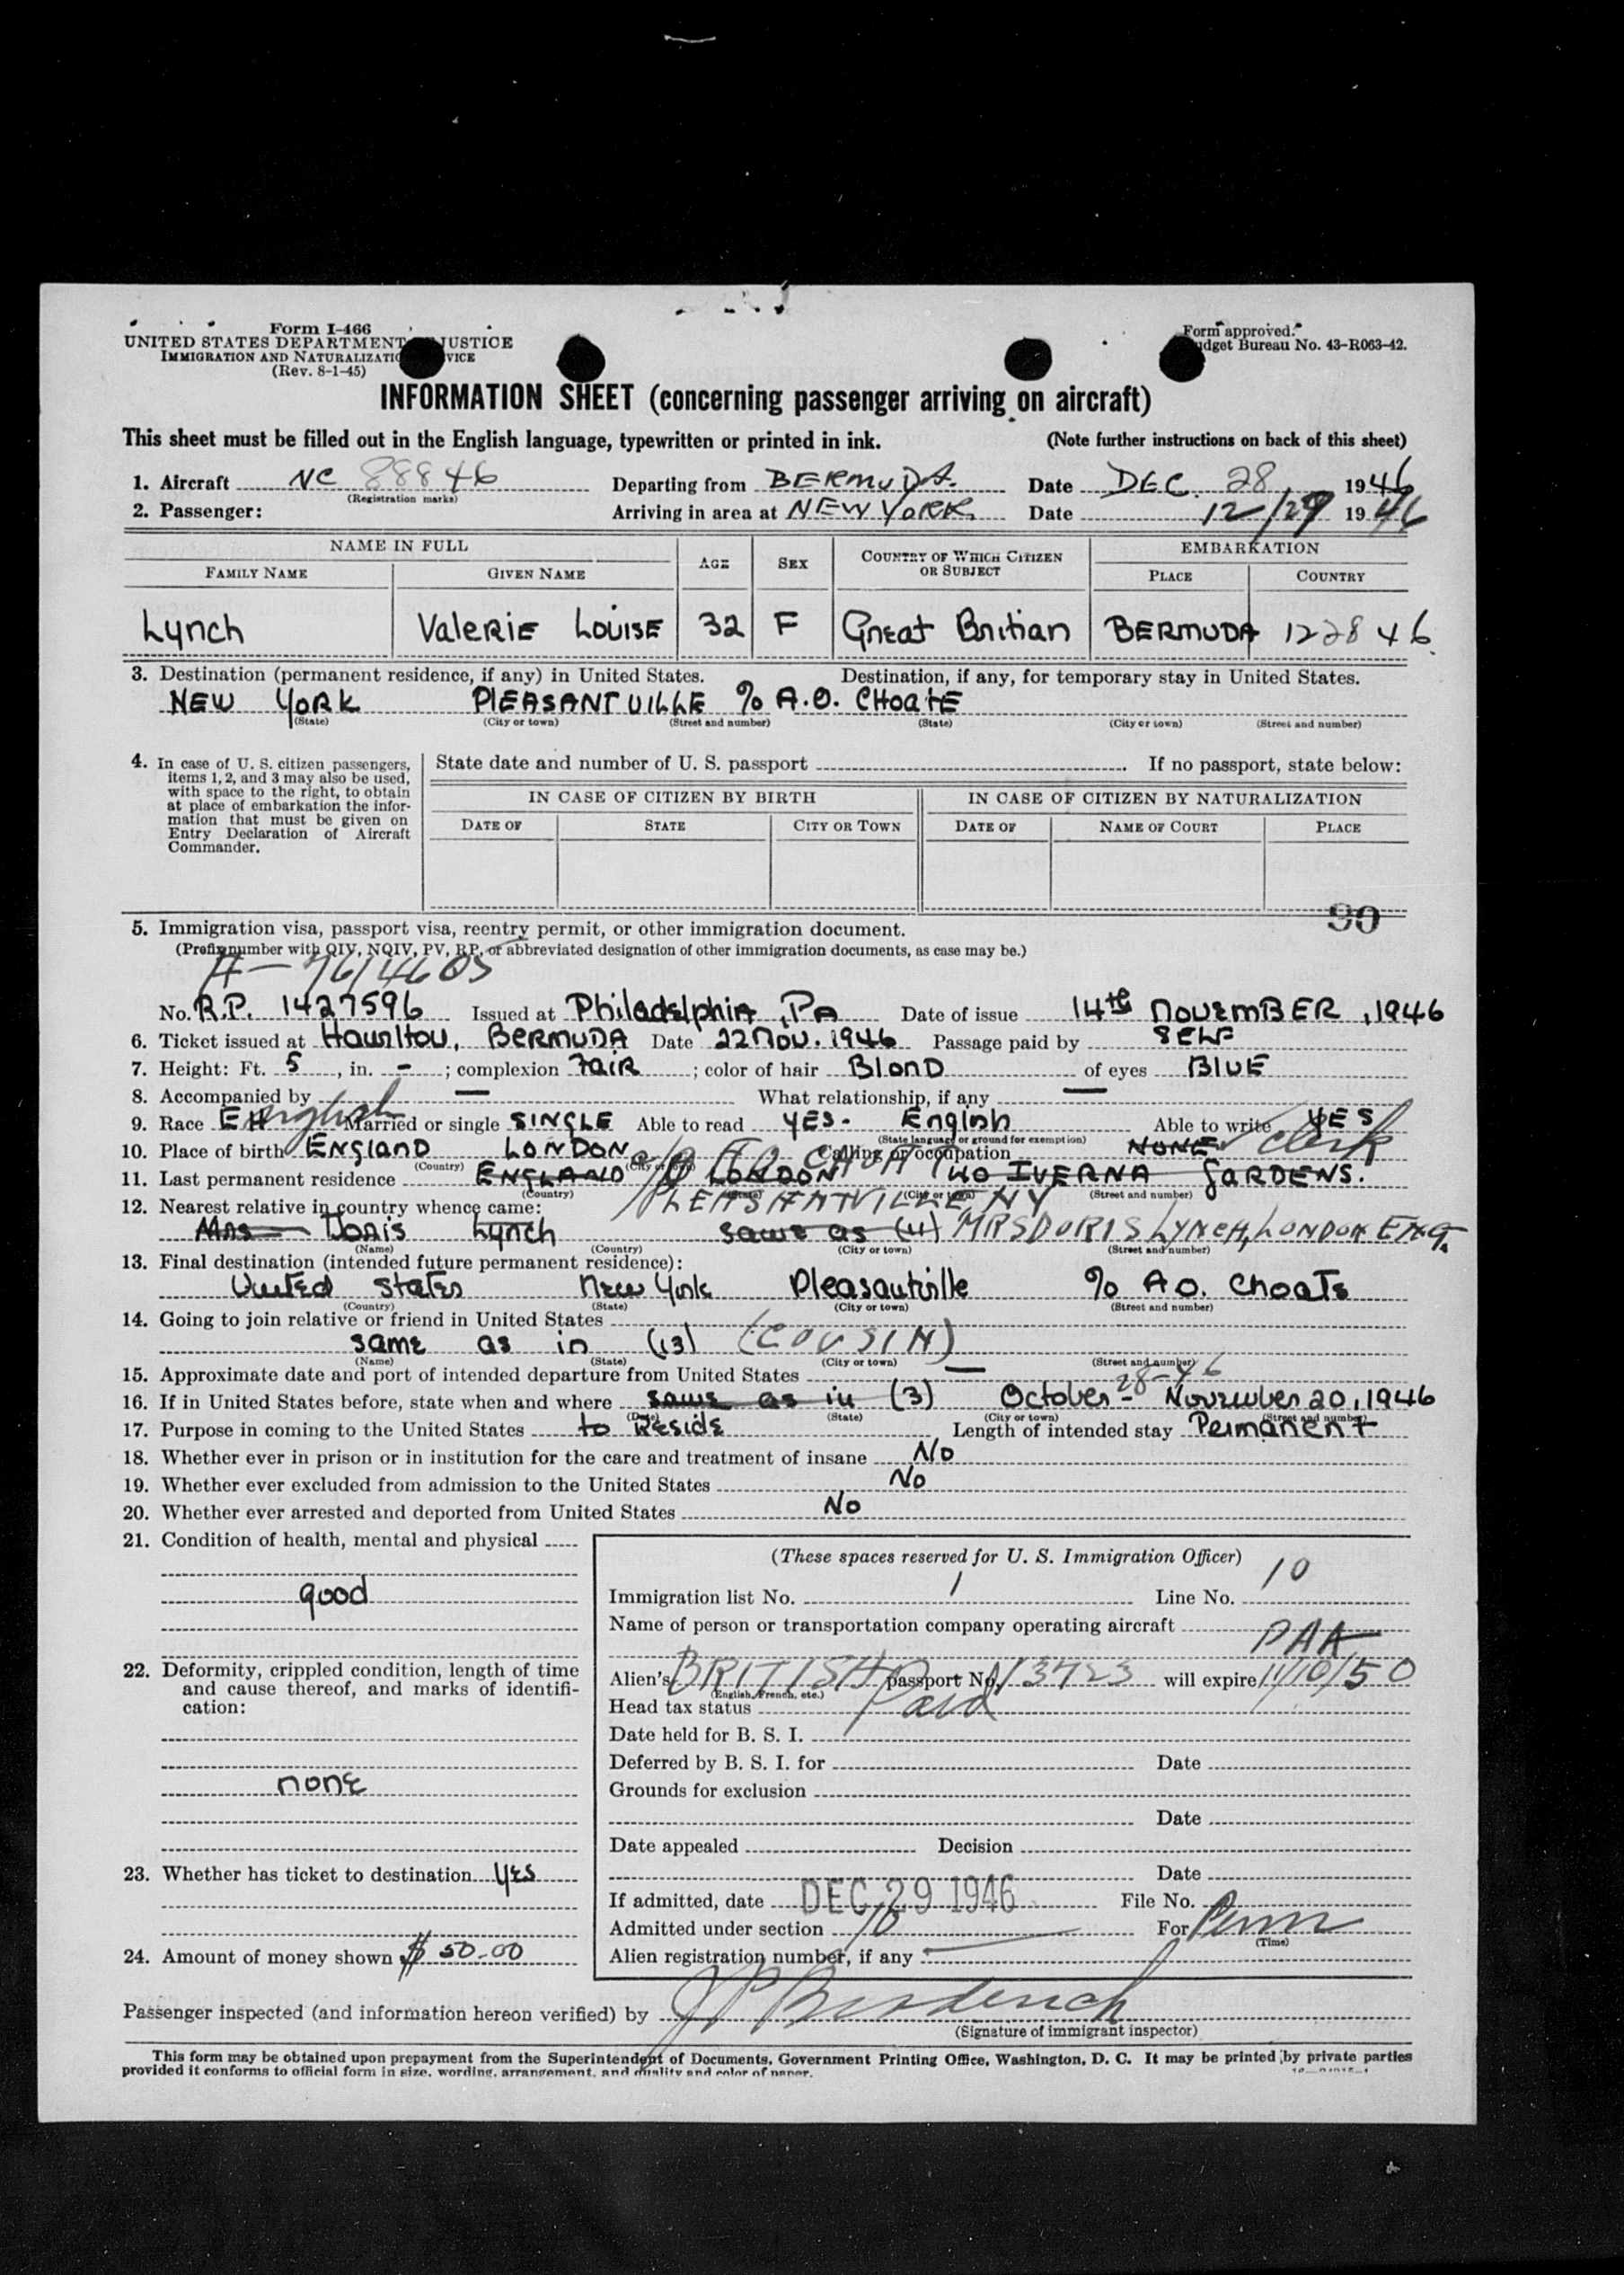 Form I-466
UNITED STATES DEPARTMENT JUSTICE
IMMIGRATION AND NATURALIZATIO VICE
(Rev. 8-1-45)
Form approved.
dget Bureau No. 43-R063-42.
INFORMATION SHEET (concerning passenger arriving on aircraft)
This sheet must be filled out in the English language, typewritten or printed in ink. (Note further instructions on back of this sheet)
1. Aircraft NC 88846 Departing from BERMUDA. Date DEC. 28 1946
(Registration marks)
2. Passenger: Arriving in area at NEW YORK. Date 12/29 1946
NAME IN FULL AGE SEX COUNTRY OF WHICH CITIZEN OR SUBJECT EMBARKATION
FAMILY NAME GIVEN NAME PLACE COUNTRY
Lynch ValERIE LOUISE 32 F GREat Britian BERMUDA 122846
3. Destination (permanent residence, if any) in United States. Destination, if any, for temporary stay in United States.
NEW YORK PlEASANTVILLE % A.O. CHOATE
(State) (City or town) (Street and number) (State) (City or town) (Street and number)
4. In case of U. S. citizen passengers, items 1, 2, and 3 may also be used, with space to the right, to obtain at place of embarkation the information that must be given on Entry Declaration of Aircraft Commander.
State date and number of U. S. passport If no passport, state below:
IN CASE OF CITIZEN BY BIRTH IN CASE OF CITIZEN BY NATURALIZATION
DATE OF STATE CITY OR TOWN DATE OF NAME OF COURT PLACE
90
5. Immigration visa, passport visa, reentry permit, or other immigration document.
(Prefix number with QIV, NQIV, PV, RP, or abbreviated designation of other immigration documents, as case may be.)
No. R.P. 1427596 Issued at PhiladElphiA, PA Date of issue 14th NOVEMBER, 1946
6. Ticket issued at Hamilton, BERMUDA Date 22 Nov. 1946 Passage paid by SELF
7. Height: Ft. 5, in. -; complexion FaiR; color of hair BlonD of eyes BlUE
8. Accompanied by — What relationship, if any —
9. Race English Married or single SINGLE Able to read YES - English Able to write YES
(State language or ground for exemption)
10. Place of birth ENglanD LONDON Calling or occupation NONE Clerk
(Country) (City or town)
11. Last permanent residence ENGLAND LONDON 40 IVERNA GARDENS.
c/o A O CHOATE
(Country) (State) (City or town) (Street and number)
PLEASANTVILLE NY
12. Nearest relative in country whence came:
Mrs Doris Lynch same as (11) MRS DORIS LYNCH, LONDON ENG.
(Name) (Country) (City or town) (Street and number)
13. Final destination (intended future permanent residence):
United States New York Pleasantville % A O. Choate
(Country) (State) (City or town) (Street and number)
14. Going to join relative or friend in United States
same as in (13) (COUSIN)
(Name) (State) (City or town) (Street and number)
15. Approximate date and port of intended departure from United States —
28-46
16. If in United States before, state when and where same as in (3) October - November 20, 1946
(Date) (State) (City or town) (Street and number)
17. Purpose in coming to the United States to Reside Length of intended stay Permanent
18. Whether ever in prison or in institution for the care and treatment of insane No
19. Whether ever excluded from admission to the United States No
20. Whether ever arrested and deported from United States No
21. Condition of health, mental and physical
good
22. Deformity, crippled condition, length of time and cause thereof, and marks of identification:
none
23. Whether has ticket to destination YES
24. Amount of money shown $ 50.00
(These spaces reserved for U. S. Immigration Officer)
Immigration list No. 1 Line No. 10
Name of person or transportation company operating aircraft PAA
Alien's BRITISH passport No. 13723 will expire 11/10/50
(English, French, etc.)
Head tax status Paid
Date held for B. S. I.
Deferred by B. S. I. for Date
Grounds for exclusion
Date
Date appealed Decision
Date
If admitted, date DEC 29 1946 File No.
Admitted under section 10 For Perm
(Time)
Alien registration number, if any
Passenger inspected (and information hereon verified) by
(Signature of immigrant inspector)
This form may be obtained upon prepayment from the Superintendent of Documents, Government Printing Office, Washington, D. C. It may be printed by private parties
provided it conforms to official form in size, wording, arrangement, and quality and color of paper.